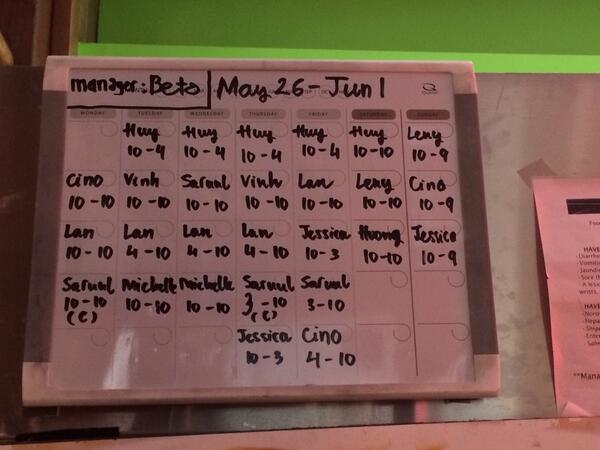 manager: Beto
May 26 - Jun 1
MONDAY TUESDAY WEDNESDAY THURSDAY FRIDAY SATURDAY SUNDAY
Huy Huy Huy Huy Huy Leny
10-4 10-4 10-4 10-4 10-10 10-9
Cino Vinh Saruul Vinh Lan Leny Cino
10-10 10-10 10-10 10-10 10-10 10-10 10-9
Lan Lan Lan Lan Jessica Huong Jessica
10-10 4-10 4-10 4-10 10-3 10-10 10-9
Saruul Michelle Michelle Saruul Saruul
10-10 10-10 10-10 3-10 3-10
(c) (c)
Jessica Cino
10-3 4-10
HAVE
-Diarrhe
-Vomitin
Jaundi
-Sore th
wrists,
HAVE
-Norov
-Hepa
-Shige
-Ente
Salm
**Mana